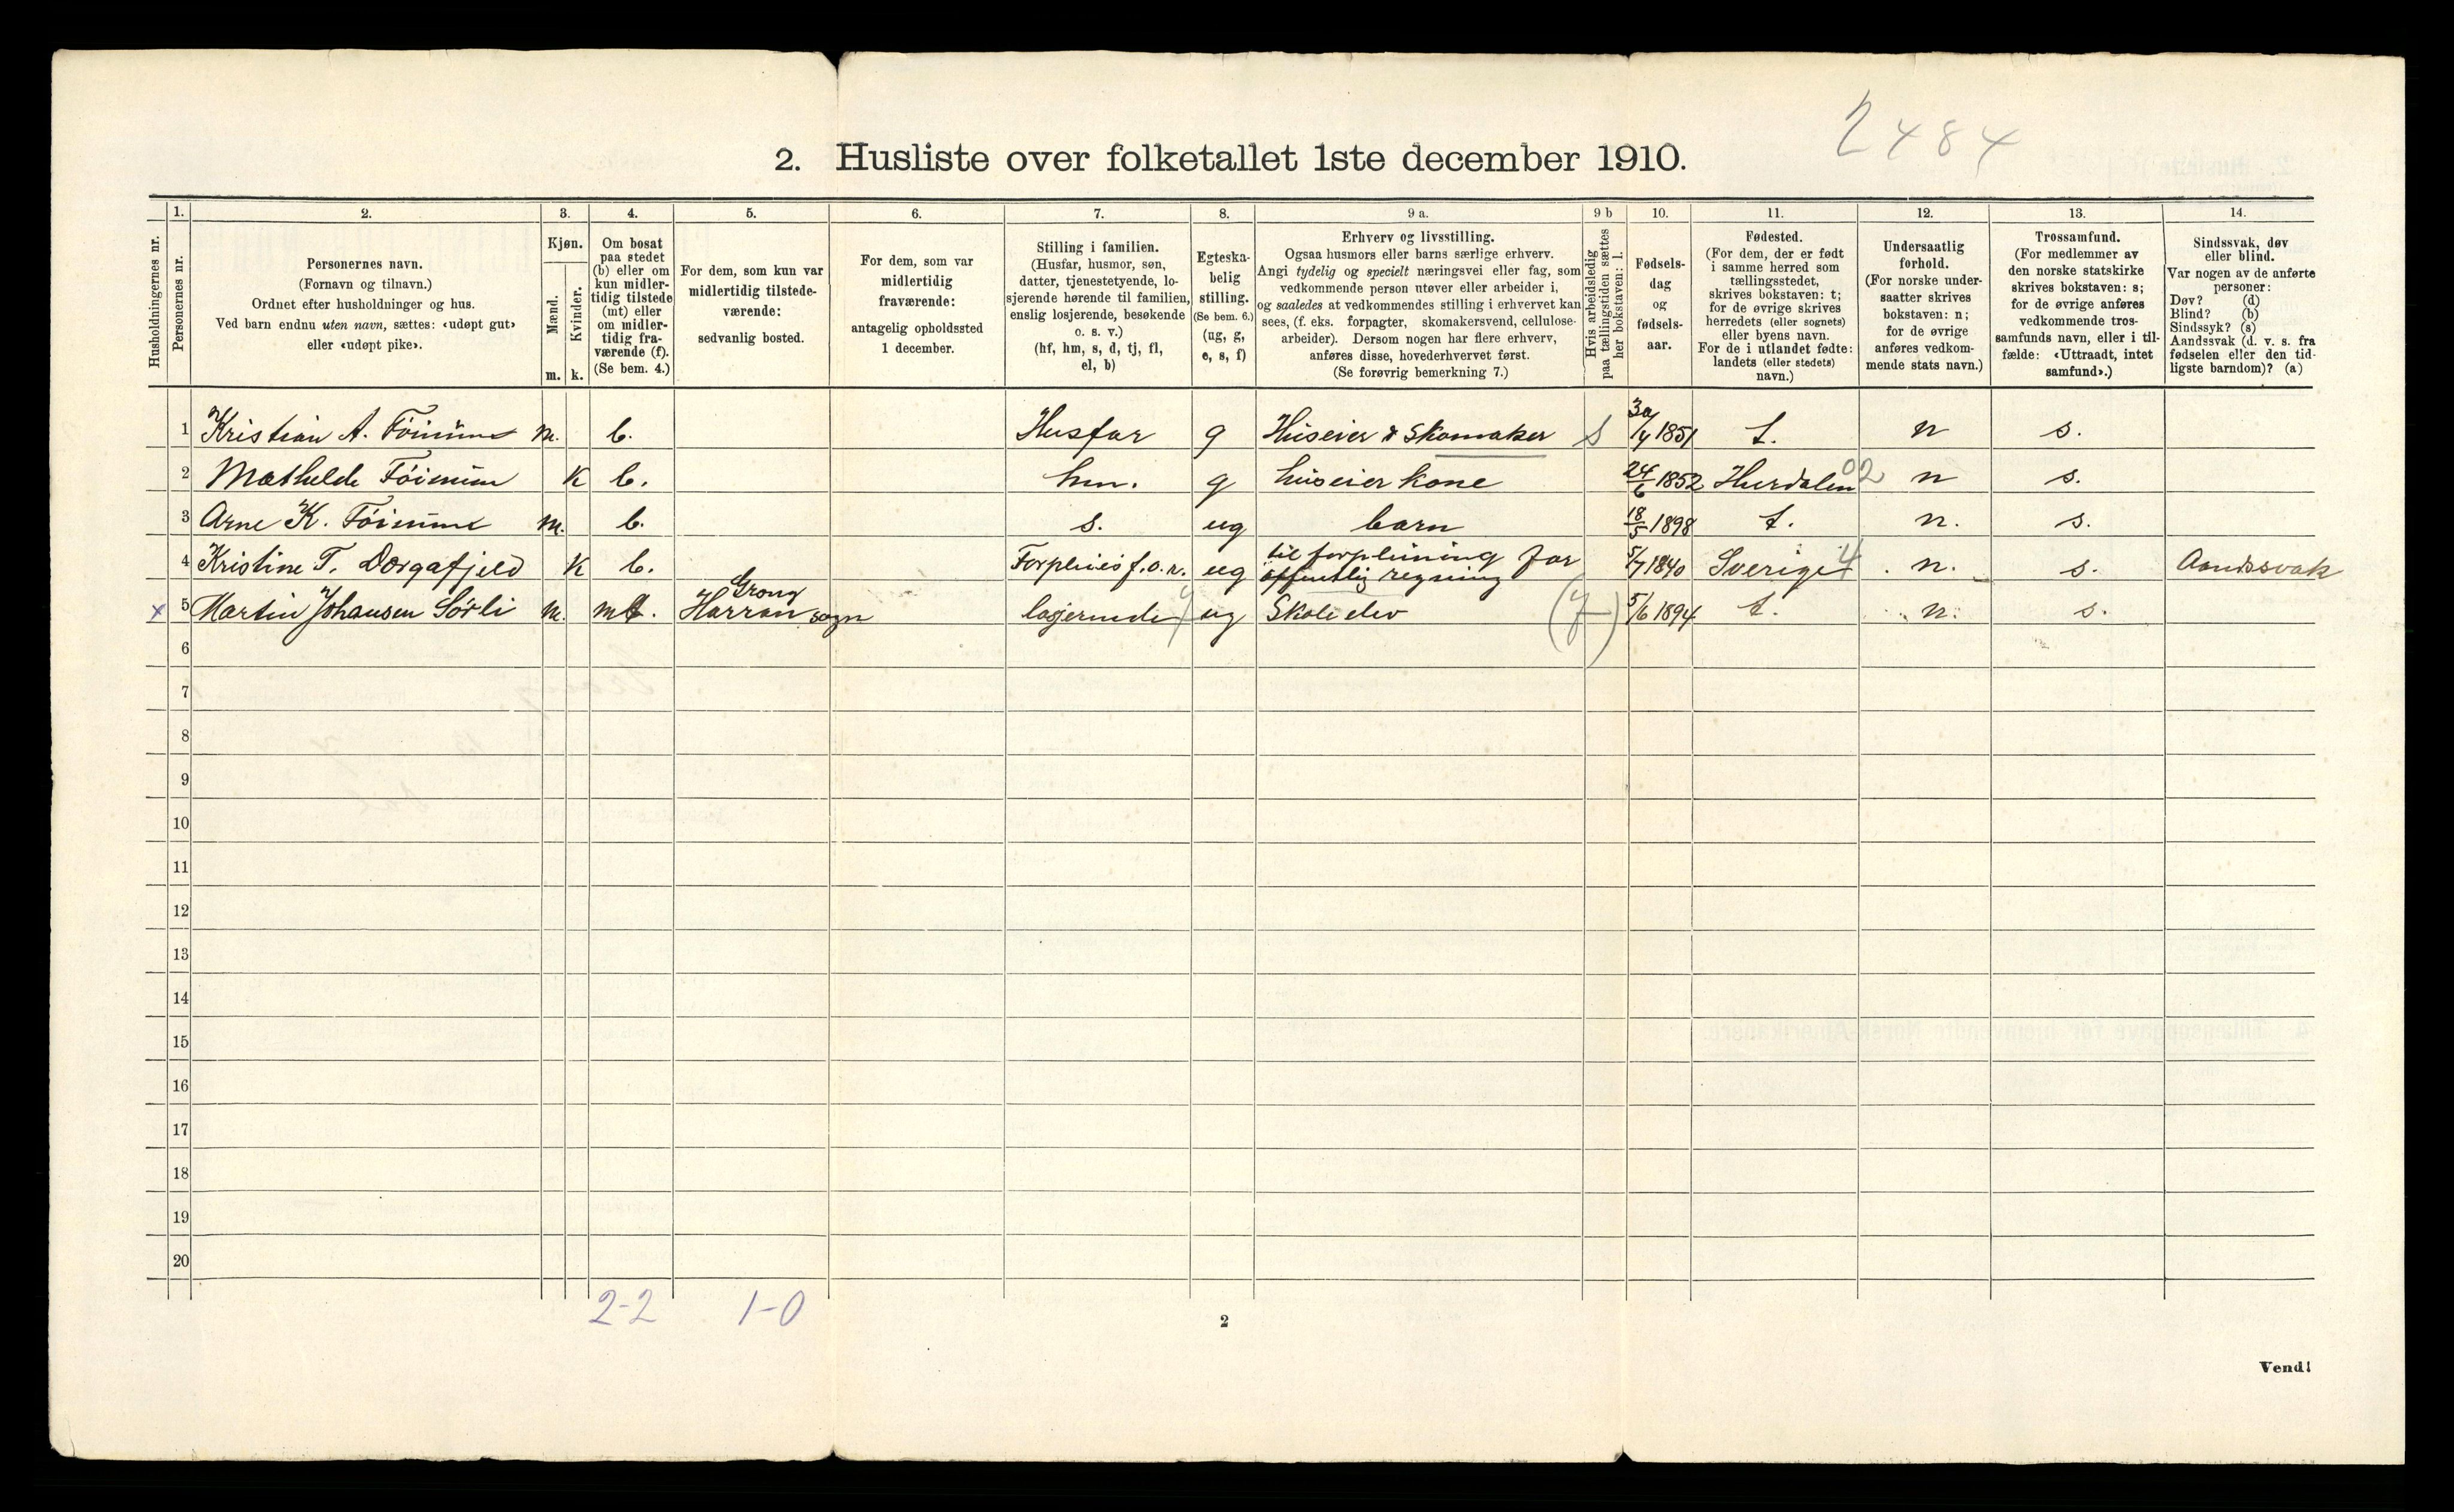 2484
2. Husliste over folketallet 1ste december 1910.
1. 2. 3. 4. 5. 6. 7. 8. 9 a. 9 b 10. 11. 12. 13. 14.
Husholdningernes nr.
Personernes nr.
Personernes navn.
(Fornavn og tilnavn.)
Ordnet efter husholdninger og hus.
Ved barn endnu uten navn, sættes: «udøpt gut»
eller «udøpt pike».
Kjøn.
Mænd.
Kvinder.
m. k.
Om bosat
paa stedet
(b) eller om
kun midler-
tidig tilstede
(mt) eller
om midler-
tidig fra-
værende (f).
(Se bem. 4.)
For dem, som kun var
midlertidig tilstede-
værende:
sedvanlig bosted.
For dem, som var
midlertidig
fraværende:
antagelig opholdssted
1 december.
Stilling i familien.
(Husfar, husmor, søn,
datter, tjenestetyende, lo-
sjerende hørende til familien,
enslig losjerende, besøkende
o. s. v.)
(hf, hm, s, d, tj, fl,
el, b)
Egteska-
belig
stilling.
(Se bem. 6.)
(ug, g,
e, s, f)
Erhverv og livsstilling.
Ogsaa husmors eller barns særlige erhverv.
Angi tydelig og specielt næringsvei eller fag, som
vedkommende person utøver eller arbeider i,
og saaledes at vedkommendes stilling i erhvervet kan
sees, (f. eks. forpagter, skomakersvend, cellulose-
arbeider). Dersom nogen har flere erhverv,
anføres disse, hovederhvervet først.
(Se forøvrig bemerkning 7.)
Hvis arbeidsledig
paa tællingstiden sættes
her bokstaven: l.
Fødsels-
dag
og
fødsels-
aar.
Fødested.
(For dem, der er født
i samme herred som
tællingsstedet,
skrives bokstaven: t;
for de øvrige skrives
herredets (eller sognets)
eller byens navn.
For de i utlandet fødte:
landets (eller stedets)
navn.)
Undersaatlig
forhold.
(For norske under-
saatter skrives
bokstaven: n;
for de øvrige
anføres vedkom-
mende stats navn.)
Trossamfund.
(For medlemmer av
den norske statskirke
skrives bokstaven: s;
for de øvrige anføres
vedkommende tros-
samfunds navn, eller i til-
fælde: «Uttraadt, intet
samfund».)
Sindssvak, døv
eller blind.
Var nogen av de anførte
personer:
Døv? (d)
Blind? (b)
Sindssyk? (s)
Aandssvak (d. v. s. fra
fødselen eller den tid-
ligste barndom)? (a)
1 Kristian A. m. b. Husfar g Huseier & Skomaker s 30/4 1851 t. n s.
2 Mathilde k b. hm. g huseier kone 24/6 1852 Hurdalen 02 n s.
3 Arne K. m. b. s. ug barn 18/5 1898 t. n. s.
4 Kristine T. Dorgafjeld k b. Forpleies f. o. r. ug til forpleining for
offentlig regning 5/7 1840 Sverige 4 n. s. Aandssvak
x 5 Martin Johansen Sörli m. mt. Grong
Harran sogn losjerende ug Skole elev 5/6 1894 t. n. s.
6
7
8
9
10
11
12
13
14
15
16
17
18
19
20
2-2 1-0
2
Vend!